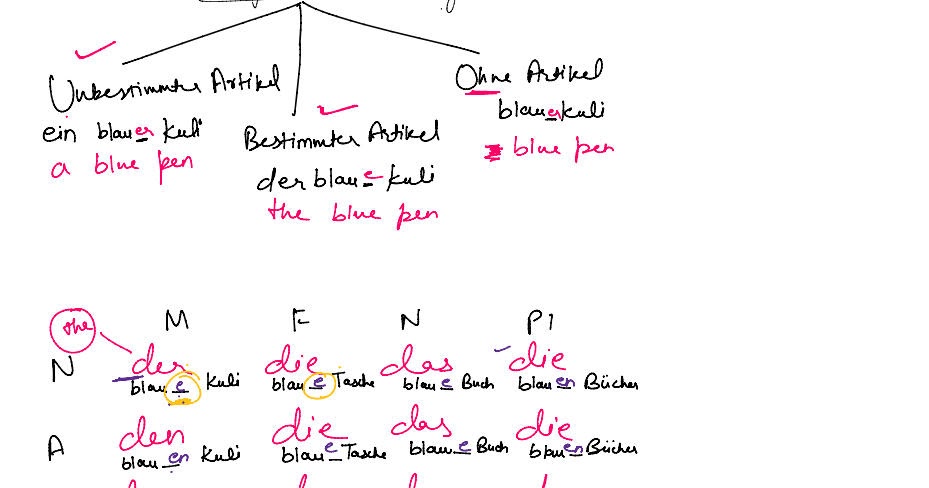 Unbestimmter Artikel
ein blauer Kuli
a blue pen
Bestimmter Artikel
der blaue Kuli
the blue pen
Ohne Artikel
blauer Kuli
blue pen
the M F N Pl
N der die das die
blaue Kuli blaue Tasche blaue Buch blauen Bücher
A den die das die
blauen Kuli blaue Tasche blaue Buch blauen Bücher